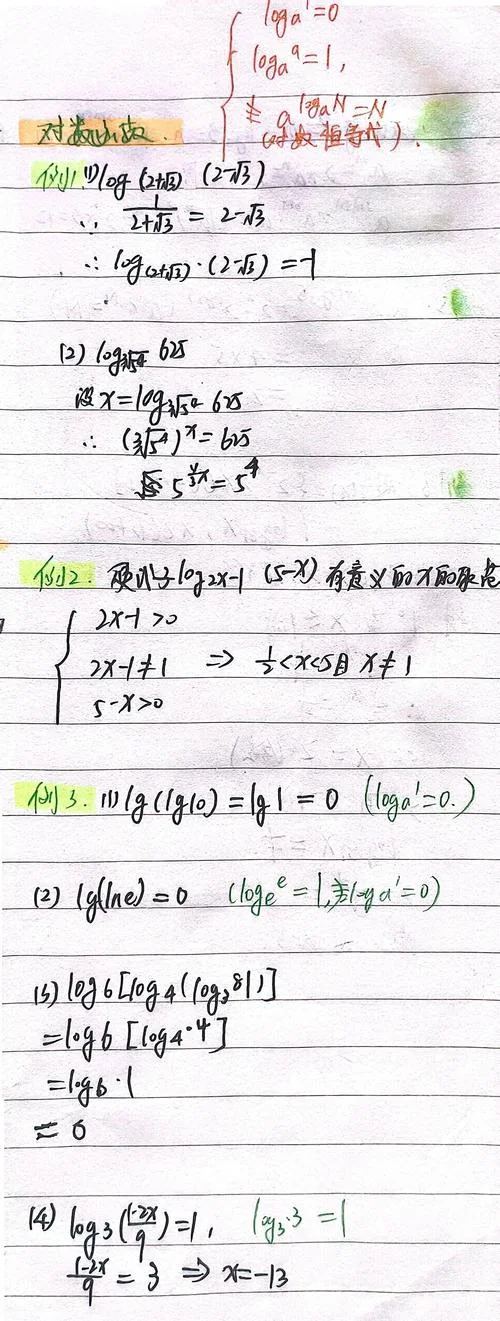 logₐ1=0
logₐa=1,
a^(logₐN)=N
对数函数. (对数恒等式).
例1. (1) log(2+√3) (2-√3)
∵ 1/(2+√3) = 2-√3
∴ log(2+√3)·(2-√3) = -1
(2) log_(³√5⁴) 625
设 x = log_(³√5⁴) 625
∴ (³√5⁴)^x = 625
5^(4/3x) = 5⁴
例2. 式子 log2x-1 (5-x) 有意义的x的取
{ 2x-1>0
2x-1≠1 ⇒ 1/2<x<5且 x≠1
5-x>0
例3. (1) lg(lg10) = lg1 = 0 (logₐ1=0.)
(2) lg(lne) = 0 (logₑe = 1, logₐ1=0)
(3) log6[log4(log₃81)]
= log6 [log4·4]
= log6·1
= 0
(4) log3((1-2x)/9) = 1, log₃·3 = 1
(1-2x)/9 = 3 ⇒ x=-13